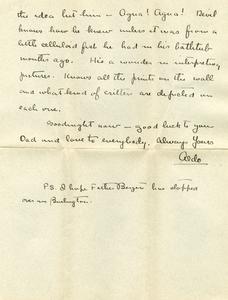 the idea hit him — Agua! Agua! Devil
knows how he knew unless it was from a
little celluloid fish he had in his bathtub
months ago. He's a wonder in interpreting
pictures. Knows all the prints on the wall
and what kind of critters are depicted on
each one.
Goodnight now — good luck to your
Dad and love to everybody. Always Yours
Aldo
P.S. I hope Father Bergere has stopped
over in Burlington.